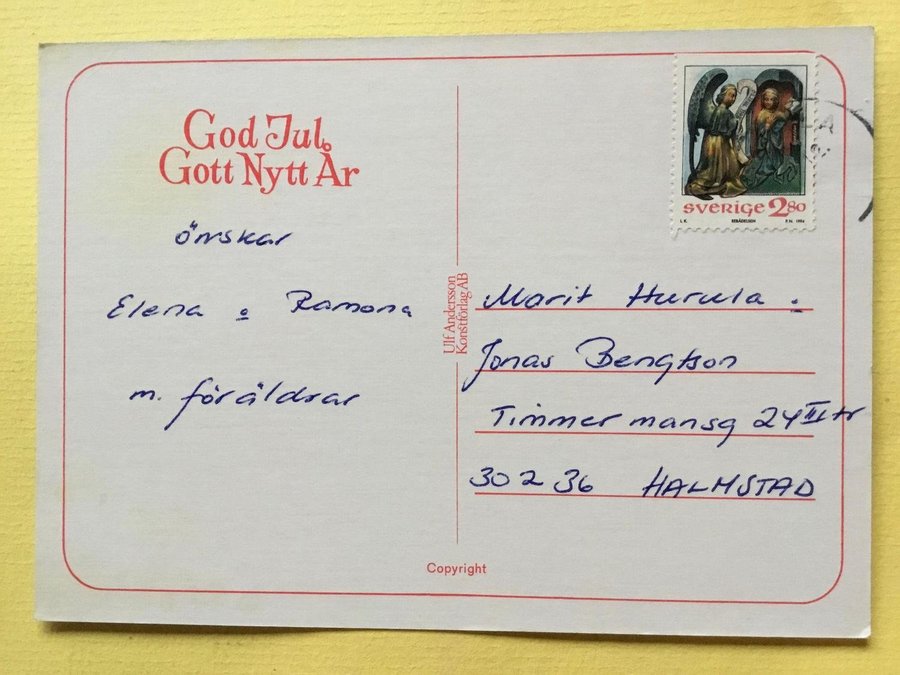 God Jul
Gott Nytt År
önskar
Elena o Ramona
m. föräldrar
Ulf Andersson
Konstförlag AB
SVERIGE 280
Marit Hurula o
Jonas Bengtson
Timmermansg 24 III tr
302 36 HALMSTAD
Copyright